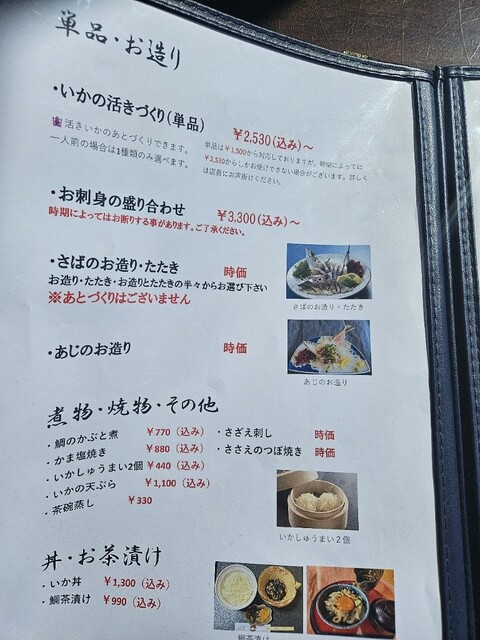 単品・お造り
・いかの活きづくり(単品)
￥2,530(込み)～
活きいかのあとづくりできます。
一人前の場合は1種類のみ選べます。
単品は￥1,500から対応しておりますが、時期によってに
￥2,530からしかお受けできない場合がございます。詳しく
は店員にお声掛けください。
・お刺身の盛り合わせ
￥3,300(込み)～
時期によってはお断りする事があります。ご了承ください。
・さばのお造り・たたき 時価
お造り・たたき・お造りとたたきの半々からお選び下さい
※あとづくりはございません
さばのお造り・たたき
・あじのお造り 時価
あじのお造り
煮物・焼物・その他
・鯛のかぶと煮 ￥770（込み）
・かま塩焼き ￥880（込み）
・いかしゅうまい2個 ￥440（込み）
・いかの天ぷら ￥1,100（込み）
・茶碗蒸し ￥330
・さざえ刺し 時価
・ささえのつぼ焼き 時価
いかしゅうまい２個
丼・お茶漬け
・いか丼 ￥1,300（込み）
・鯛茶漬け ￥990（込み）
鯛茶漬け